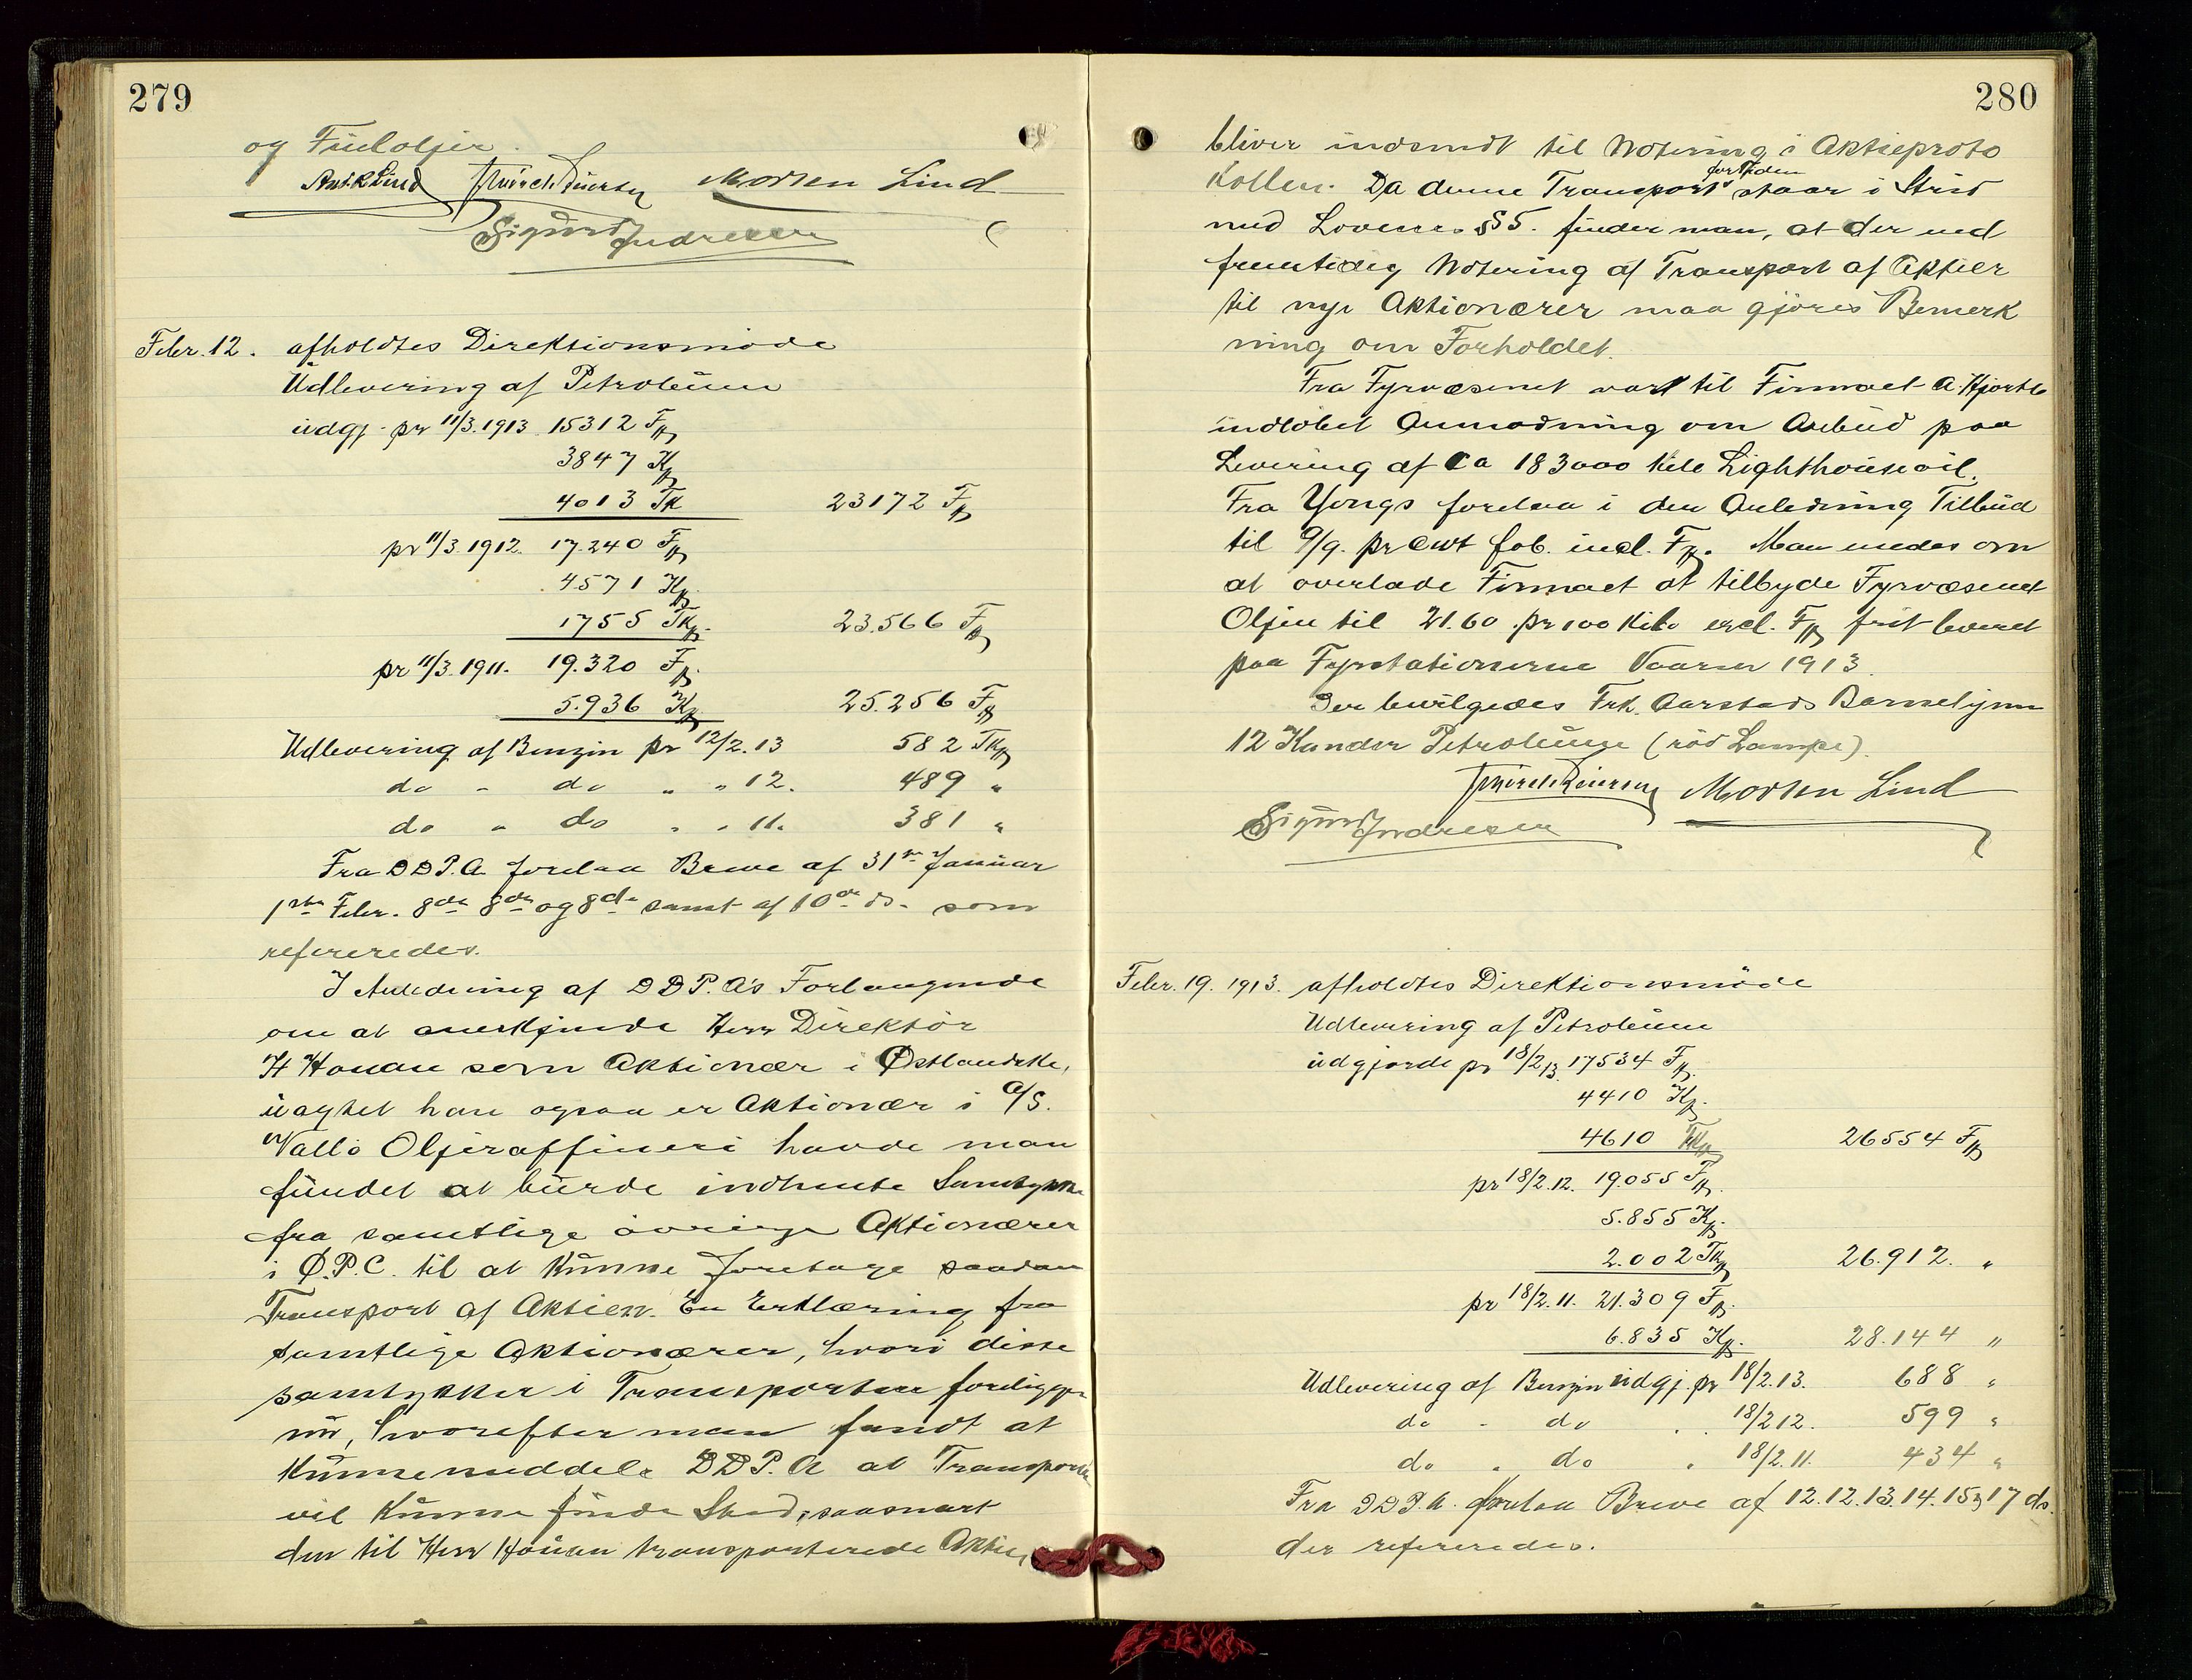 279
og Fueloljer.
Morten Lind
Sigurd Indresen
Febr. 12. afholdtes Direktionsmöde
Udlevering af Petroleum
udgj. pr 11/3.1913 15312 Fp
3847 Kp
4013 Tk 23172 Fp
pr 11/3.1912. 17.240 Fp
4571 Kp
1755 Tkp. 23.566 Fp
pr 11/3.1911. 19.320 Fp.
5.936 Kp 25.256 Fp
Udlevering af Benzin pr 12/2.13 582 Tkp
do " do " " 12. 489 "
do " do " " 11. 381 "
Fra DDP.A. forelaa Breve af 31te Januar
1ste Febr. 8de 8de og 8de samt af 10de ds. som
refereredes.
I Anledning af DDP.A's Forlangende
om at anerkjende Herr Direktör
H Houan som Aktionær i Østlandske,
uagtet han ogsaa er Aktionær i A/S.
Vallö Oljeraffineri havde man
fundet at burde indhente Samtykke
fra samtlige övrige Aktionærer
i Ø.P.C. til at kunne foretage saadan
Transport af Aktien. En Erklæring fra
samtlige Aktionærer, hvori disse
samtykker i Transporten foreligger
nu, hvorefter man fandt at
kunne meddele DDP.A at Transporten
vil kunne finde Sted, saasnart
den til Herr Houan transporterede Aktie
280
bliver indsendt til Notering i Aktieproto
kollen. Da denne Transport for Tiden staar i Strid
med Lovenes §5. finder man, at der ved
fremtidig Notering af Transport af Aktier
til nye Aktionærer maa gjöres Bemerk
ning om Forholdet.
Fra Fyrvæsenet var til Firmaet A. Hjorth
indlöbet Anmodning om Anbud paa
Levering af ca 183000 kilo Lighthouseoil.
Fra Yongs forelaa i den Anledning Tilbud
til 9/9. pr cwt fob. incl. Fp. Man enedes om
at overlade Firmaet at tilbyde Fyrvæsenet
Oljen til 21.60 pr 100 Kilo excl. Fp frit leveret
paa Fyrstationerne Vaaren 1913.
Der bevilgedes Frk. Aarstads Barnehjem
12 Kander Petroleum (röd Lampe).
Morten Lind
Sigurd Indresen
Febr. 19. 1913. afholdtes Direktionsmöde
Udlevering af Petroleum
udgjorde pr 18/2 13. 17534 Fp.
4410 Kp.
4610 Tkp 26554 Fp
pr 18/2.12. 19.055 Fp.
5.855 Kp.
2.002 Tkp 26.912. "
pr 18/2.11. 21.309 Fp.
6.835 Kp. 28.144 "
Udlevering af Benzin udgj. pr 18/2.13. 688 "
do " do " " 18/2 12. 599 "
do " do " 18/2.11. 434 "
Fra DDP.A. forelaa Breve af 12.12.13.14.15 og 17 ds.
der refereredes.